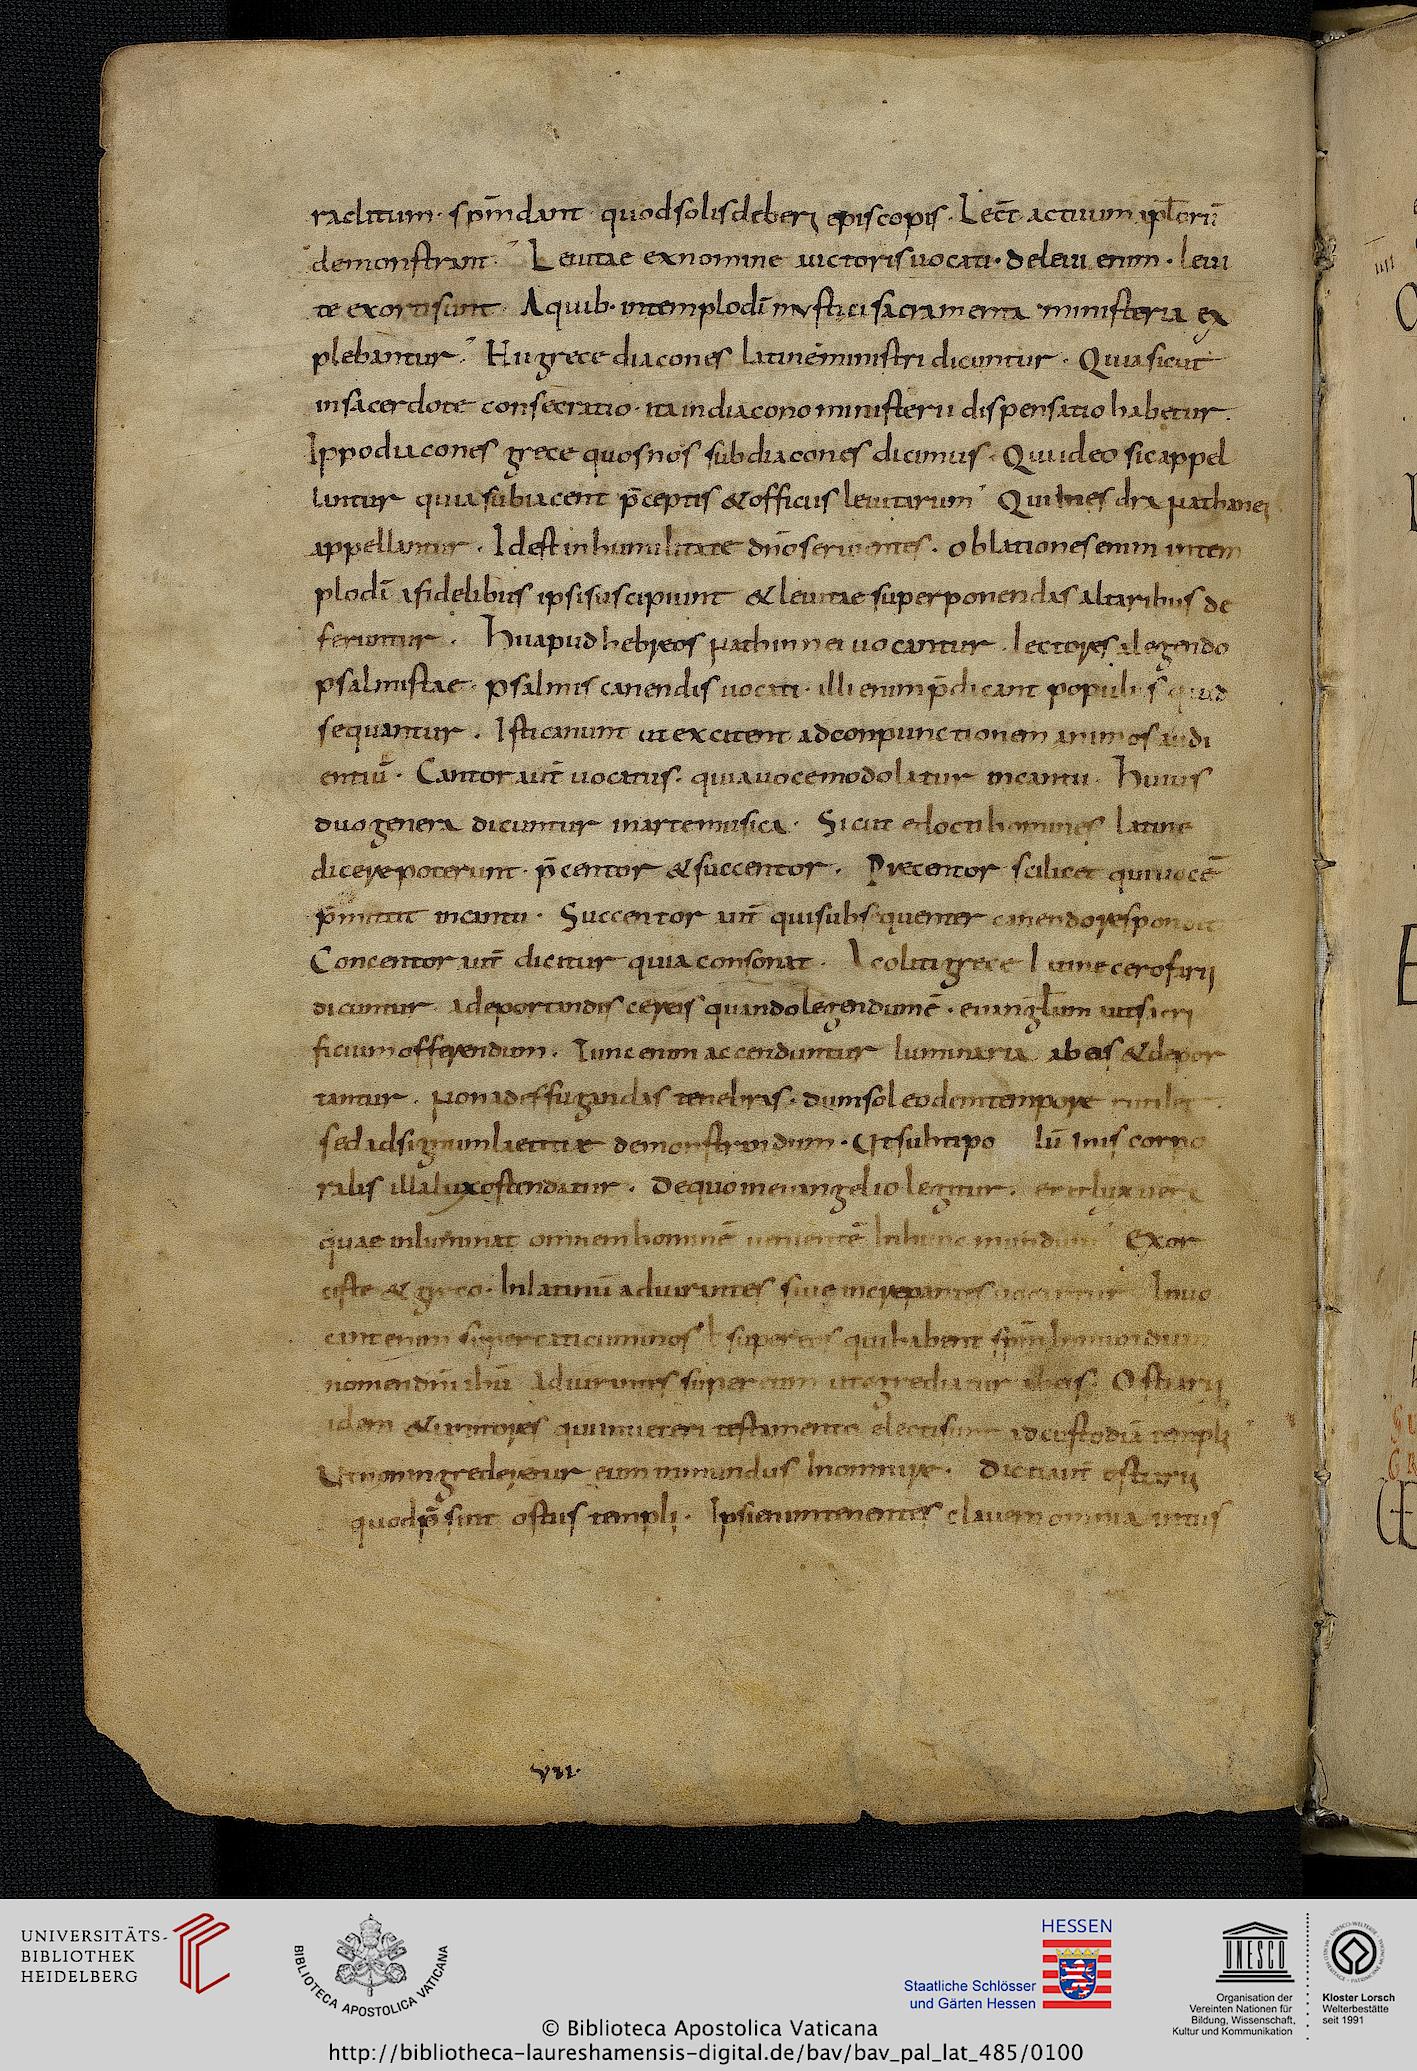 raclitum · sp̄m dant · quod solis deberi episcopis · Lect̄ actuum apl̄oru᷒
demonstrant · Leuitae ex nomine auctoris uocati · de leui enim · leui
te exorti sunt · A quib· in templo dī mystici sacramenta ministeria ex
plebantur · Hii grece diacones latine ministri dicuntur · Quia sicut
in sacerdote consecratio · ita in diacono ministerii dispensatio habetur ·
Ippodiacones grece quos nos subdiacones dicimus · Qui ideo sic appel
lantur quia subiacent p̄ceptis & officiis leuitarum
appellantur · Id est in humilitate dn̄o seruientes · oblationes enim in tem
plo dī a fidelibus ipsi suscipiunt & leuitae superponendas altaribus de
feruntur · Hii apud hebreos nathinnei uocantur · lectores a legendo
psalmistae · psalmis canendis uocati · illi enim p̄dicant populis quid
sequantur · Isti canunt ut excitent ad conpunctionem animos audi
entiū · Cantor aut̄ uocatus · quia uoce modolatur in cantu · Huius
duo genera dicuntur in arte musica · Sicut docti homines latine
dicere poterunt · p̄centor & succentor · Precentor scilicet qui uocē
p̄mittit in cantu · Succentor aut̄ qui subsequenter canendo respondit
Concentor aut̄ dicitur quia consonat · Acoliti grece latine cerofarii
dicuntur a deportandis cereis quando legendum ē · euangl̄ium aut sacri
ficium offerendum · Tunc enim accenduntur luminaria ab eis & depor
tantur · Non ad effugandas tenebras · dum sol eodem tempore rutilet ·
sed ad signum laetitiae demonstrandum · Ut sub tipo lūinis corpo
ralis illa lux ostendatur · De quo in euangelio legitur · erat lux uera
quae inluminat omnem hominē uenientē In hunc mundum Exor
ciste & greco · In latinū adiurantes siue increpantes uocantur Inuo
cant enim super caticuminos ł super eos qui habent sp̄m Inmundum
nomen dn̄i ihū adiurantes super eum ut egrediatur ab eis · Ostiarii
idem & ianitores qui in ueteri testamento electi sunt ad custodiā templi
Ut non ingrederetur eum inmundus In omni re · Dicti aut̄ ostiarii
quod p̄sint ostiis templi · Ipsi enim tenentes clauem omnia intus
VII·
UNIVERSITÄTS-
BIBLIOTHEK
HEIDELBERG
BIBLIOTECA APOSTOLICA VATICANA
HESSEN
Staatliche Schlösser
und Gärten Hessen
UNESCO
Organisation der
Vereinten Nationen für
Bildung, Wissenschaft,
Kultur und Kommunikation
Kloster Lorsch
Welterbestätte
seit 1991
© Biblioteca Apostolica Vaticana
http://bibliotheca-laureshamensis-digital.de/bav/bav_pal_lat_485/0100